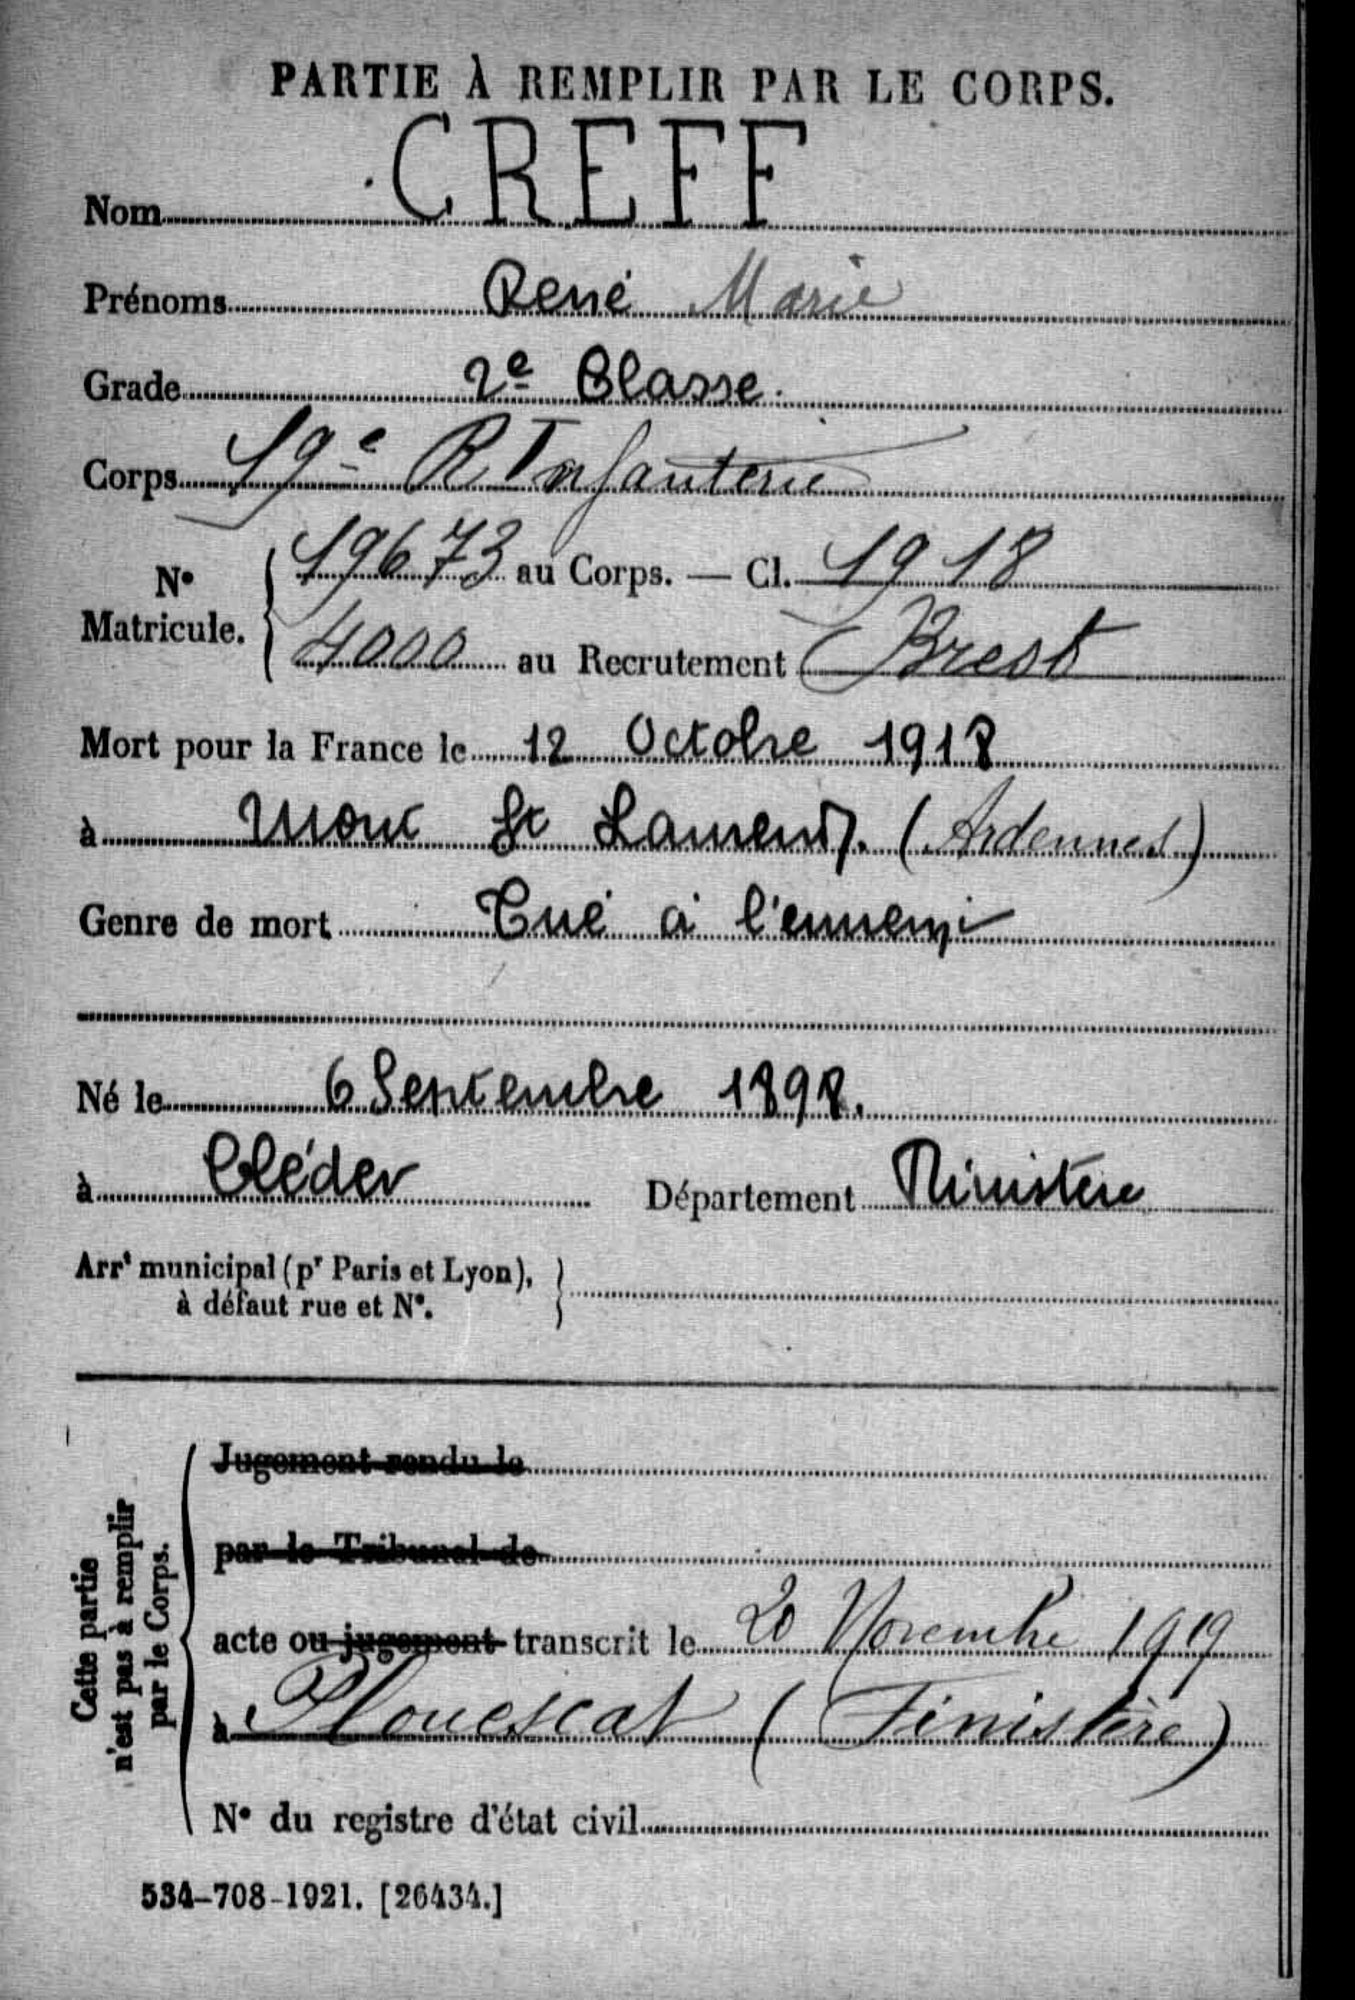 PARTIE À REMPLIR PAR LE CORPS.
Nom CREFF
Prénoms René Marie
Grade 2e Classe.
Corps 19e R Infanterie
N° Matricule. 19673 au Corps. — Cl. 1918
4000 au Recrutement Brest
Mort pour la France le 12 Octobre 1918
à Mont St Laurent. (Ardennes)
Genre de mort Tué à l'ennemi
Né le 6 Septembre 1898.
à Cléder Département Finistère
Arrt municipal (pr Paris et Lyon),
à défaut rue et N°.
Cette partie
n'est pas à remplir
par le Corps.
Jugement rendu le
par le Tribunal de
acte ou jugement transcrit le 20 Novembre 1919
à Plouescat (Finistère)
N° du registre d'état civil
534-708-1921. [26434.]